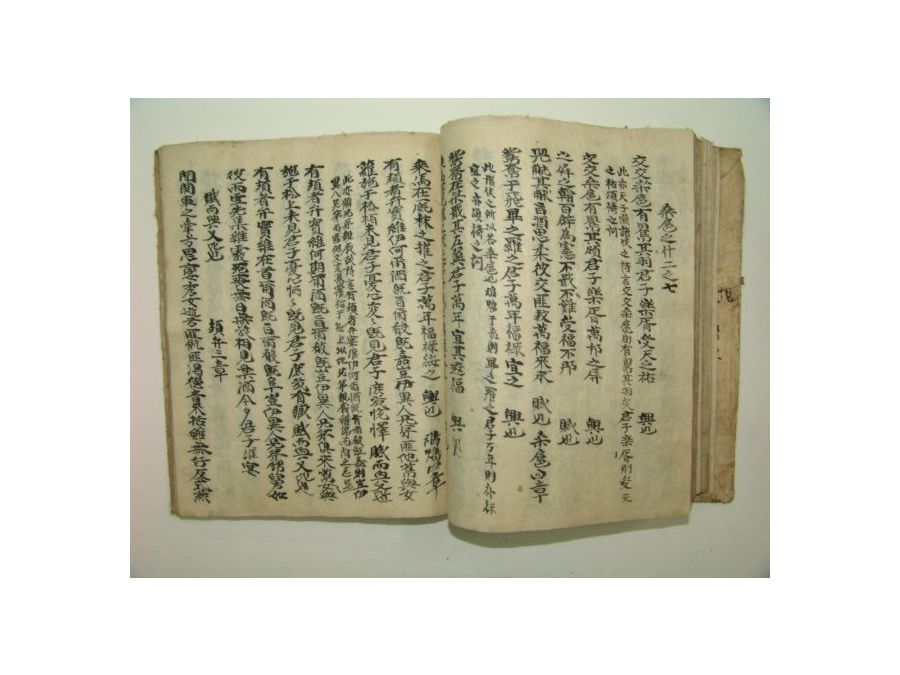 桑扈之什二之七
交交桑扈有鶯其羽君子樂胥受天之祜 興也
此亦天子燕諸侯之詩言交交桑扈則有鶯其羽矣君子樂胥則受天
之祜頌禱之詞
交交桑扈有鶯其領君子樂胥萬邦之屏 興也
之屏之翰百辟為憲不戢不難受福不那 賦也
兕觥其觩旨酒思柔彼交匪敖萬福來求 賦也 桑扈四章
鴛鴦于飛畢之羅之君子萬年福祿宜之 興也
此諸侯之所以答桑扈也鴛鴦于飛則畢之羅之矣君子万年則福祿
宜之亦頌禱之詞
鴛鴦在梁戢其左翼君子萬年宜其遐福 興也
乘馬在廄秣之摧之君子萬年福祿綏之 興也 鴛鴦四章
有頍者弁實維伊何爾酒既旨爾殽既嘉豈伊異人兄弟匪他蔦與女
蘿施于松柏未見君子憂心奕〻既見君子庶幾悅懌 賦而興又比
有頍者弁實維何期爾酒既旨爾殽既時豈伊異人兄弟俱來蔦與女
施于松上未見君子憂心怲〻既見君子庶幾有臧 賦而興又比也
有頍者弁實維在首爾酒既旨爾殽既阜豈伊異人兄弟甥舅如
彼雨雪先集維霰死喪無日無幾相見樂酒今夕君子維宴
賦而興又比 頍弁三章
間關車之舝兮思孌季女逝兮匪飢匪渴德音來括雖無好友式燕